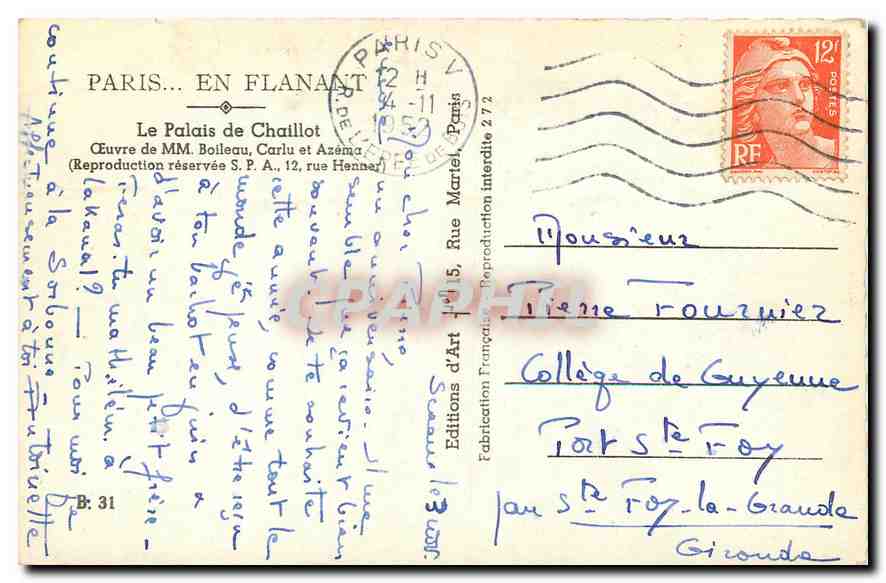 PARIS... EN FLANANT
Le Palais de Chaillot
Œuvre de MM. Boileau, Carlu et Azéma
(Reproduction réservée S. P. A., 12, rue Henner)
B. 31
Editions d'Art 15, Rue Martel, Paris
Fabrication Française, Reproduction interdite 272
PARIS V
12 H
4 -11
1952
R. DE L'EPEE DE BOIS
12F
POSTES
RF
Sceaux le 3 nov.
Mon cher Pierre,
un anniversaire. Il me
semble que ça revient bien
souvent. Je te souhaite
cette année, comme tout le
monde je pense, d'être reçu
à ton bachot en juin &
d'avoir un beau petit frère -
Feras-tu mathélem. à
Lakanal? — Pour moi je
continue à la Sorbonne -
Affectueusement à toi Antoinette
Monsieur
Pierre Fournier
Collège de Guyenne
Port Ste Foy
par Ste Foy-la-Grande
Gironde
CPAPHIL